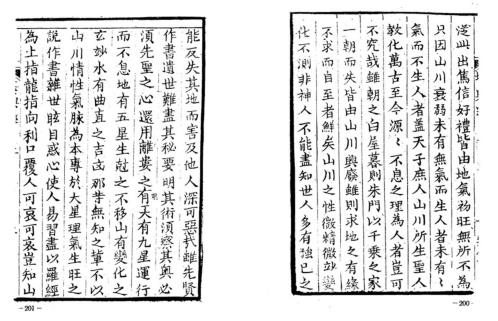 出雋信好禮皆由地氣初旺無所不為
只因山川衰弱未有無氣而生人者未有〻
氣而不生人者蓋天子庶人山川所生聖人
教化萬古至今源〻不息之理為人者豈可
不究哉雖朝之白屋暮則朱門以千乘之家
一朝而失皆由山川興廢雖則求地之有緣
不求而自至者鮮矣山川之性微精微玅變
化不測非神人不能盡知世人多有強已之
-200-
能反失其地而害及他人深可惡哉雖先賢
作書遺世難盡其秘要明其術須察其奧必
須先聖之心還用離婁之有天有九星運行
而不息地有五星生尅之不移山有變化之
玄妙水有曲直之吉凶那等無知之輩不以
山川情性氣脈為本專於大星理氣生旺之
說作書雖世眩目惑心使人易習盡以羅經
為上指龍指向利口覆人可哀可哀豈知山
-201-